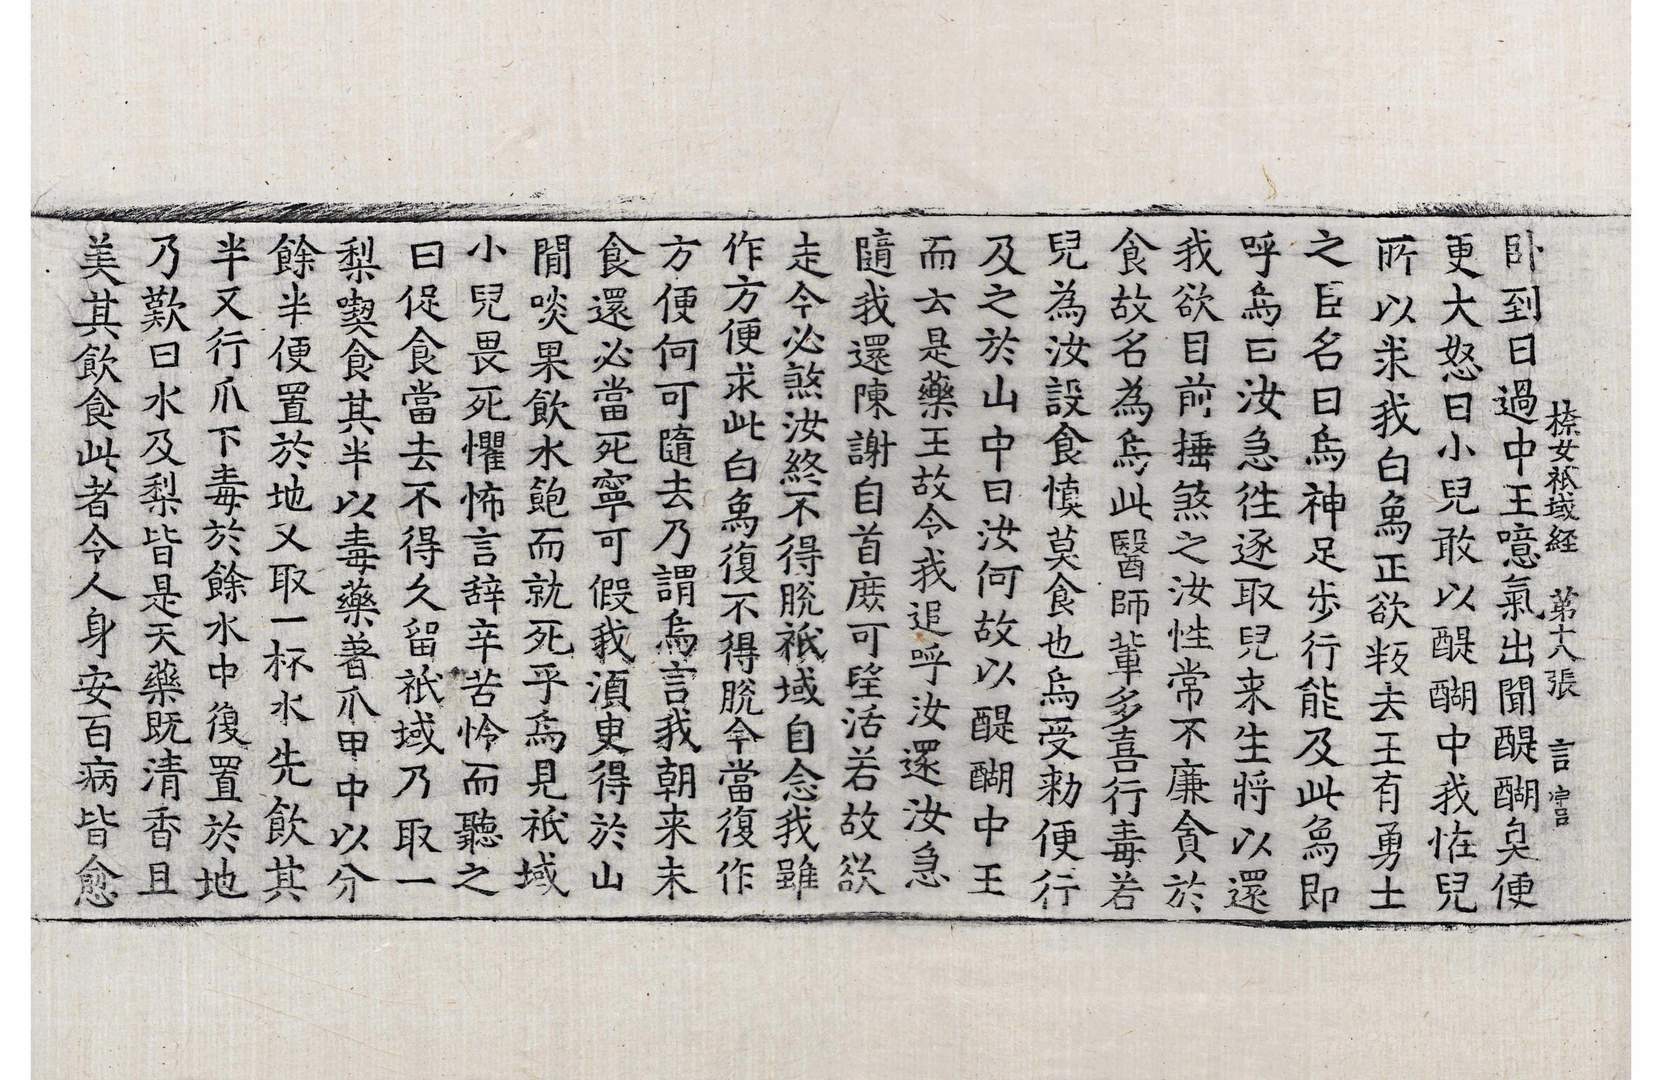 㮈女祇域経 第十八張 言 宮
卧到日過中王噫氣出聞醍醐臭便
更大怒曰小兒敢以醍醐中我恠兒
所以求我白象正欲叛去王有勇士
之臣名曰烏神足步行能及此象即
呼烏曰汝急徃逐取兒来生將以還
我欲目前捶煞之汝性常不廉貪於
食故名為烏此醫師輩多喜行毒若
兒為汝設食慎莫食也烏受勑便行
及之於山中曰汝何故以醍醐中王
而云是藥王故令我追呼汝還汝急
隨我還陳謝自首庻可望活若故欲
走今必煞汝終不得脫祇域自念我雖
作方便求此白象復不得脫今當復作
方便何可隨去乃謂烏言我朝来未
食還必當死寧可假我湏臾得於山
閒啖果飲水飽而就死乎烏見祇域
小兒畏死懼怖言辞辛苦怜而聽之
曰促食當去不得久留祇域乃取一
梨喫食其半以毒藥著爪甲中以分
餘半便置於地又取一杯水先飲其
半又行爪下毒於餘水中復置於地
乃歎曰水及梨皆是天藥既清香且
美其飲食此者令人身安百病皆愈